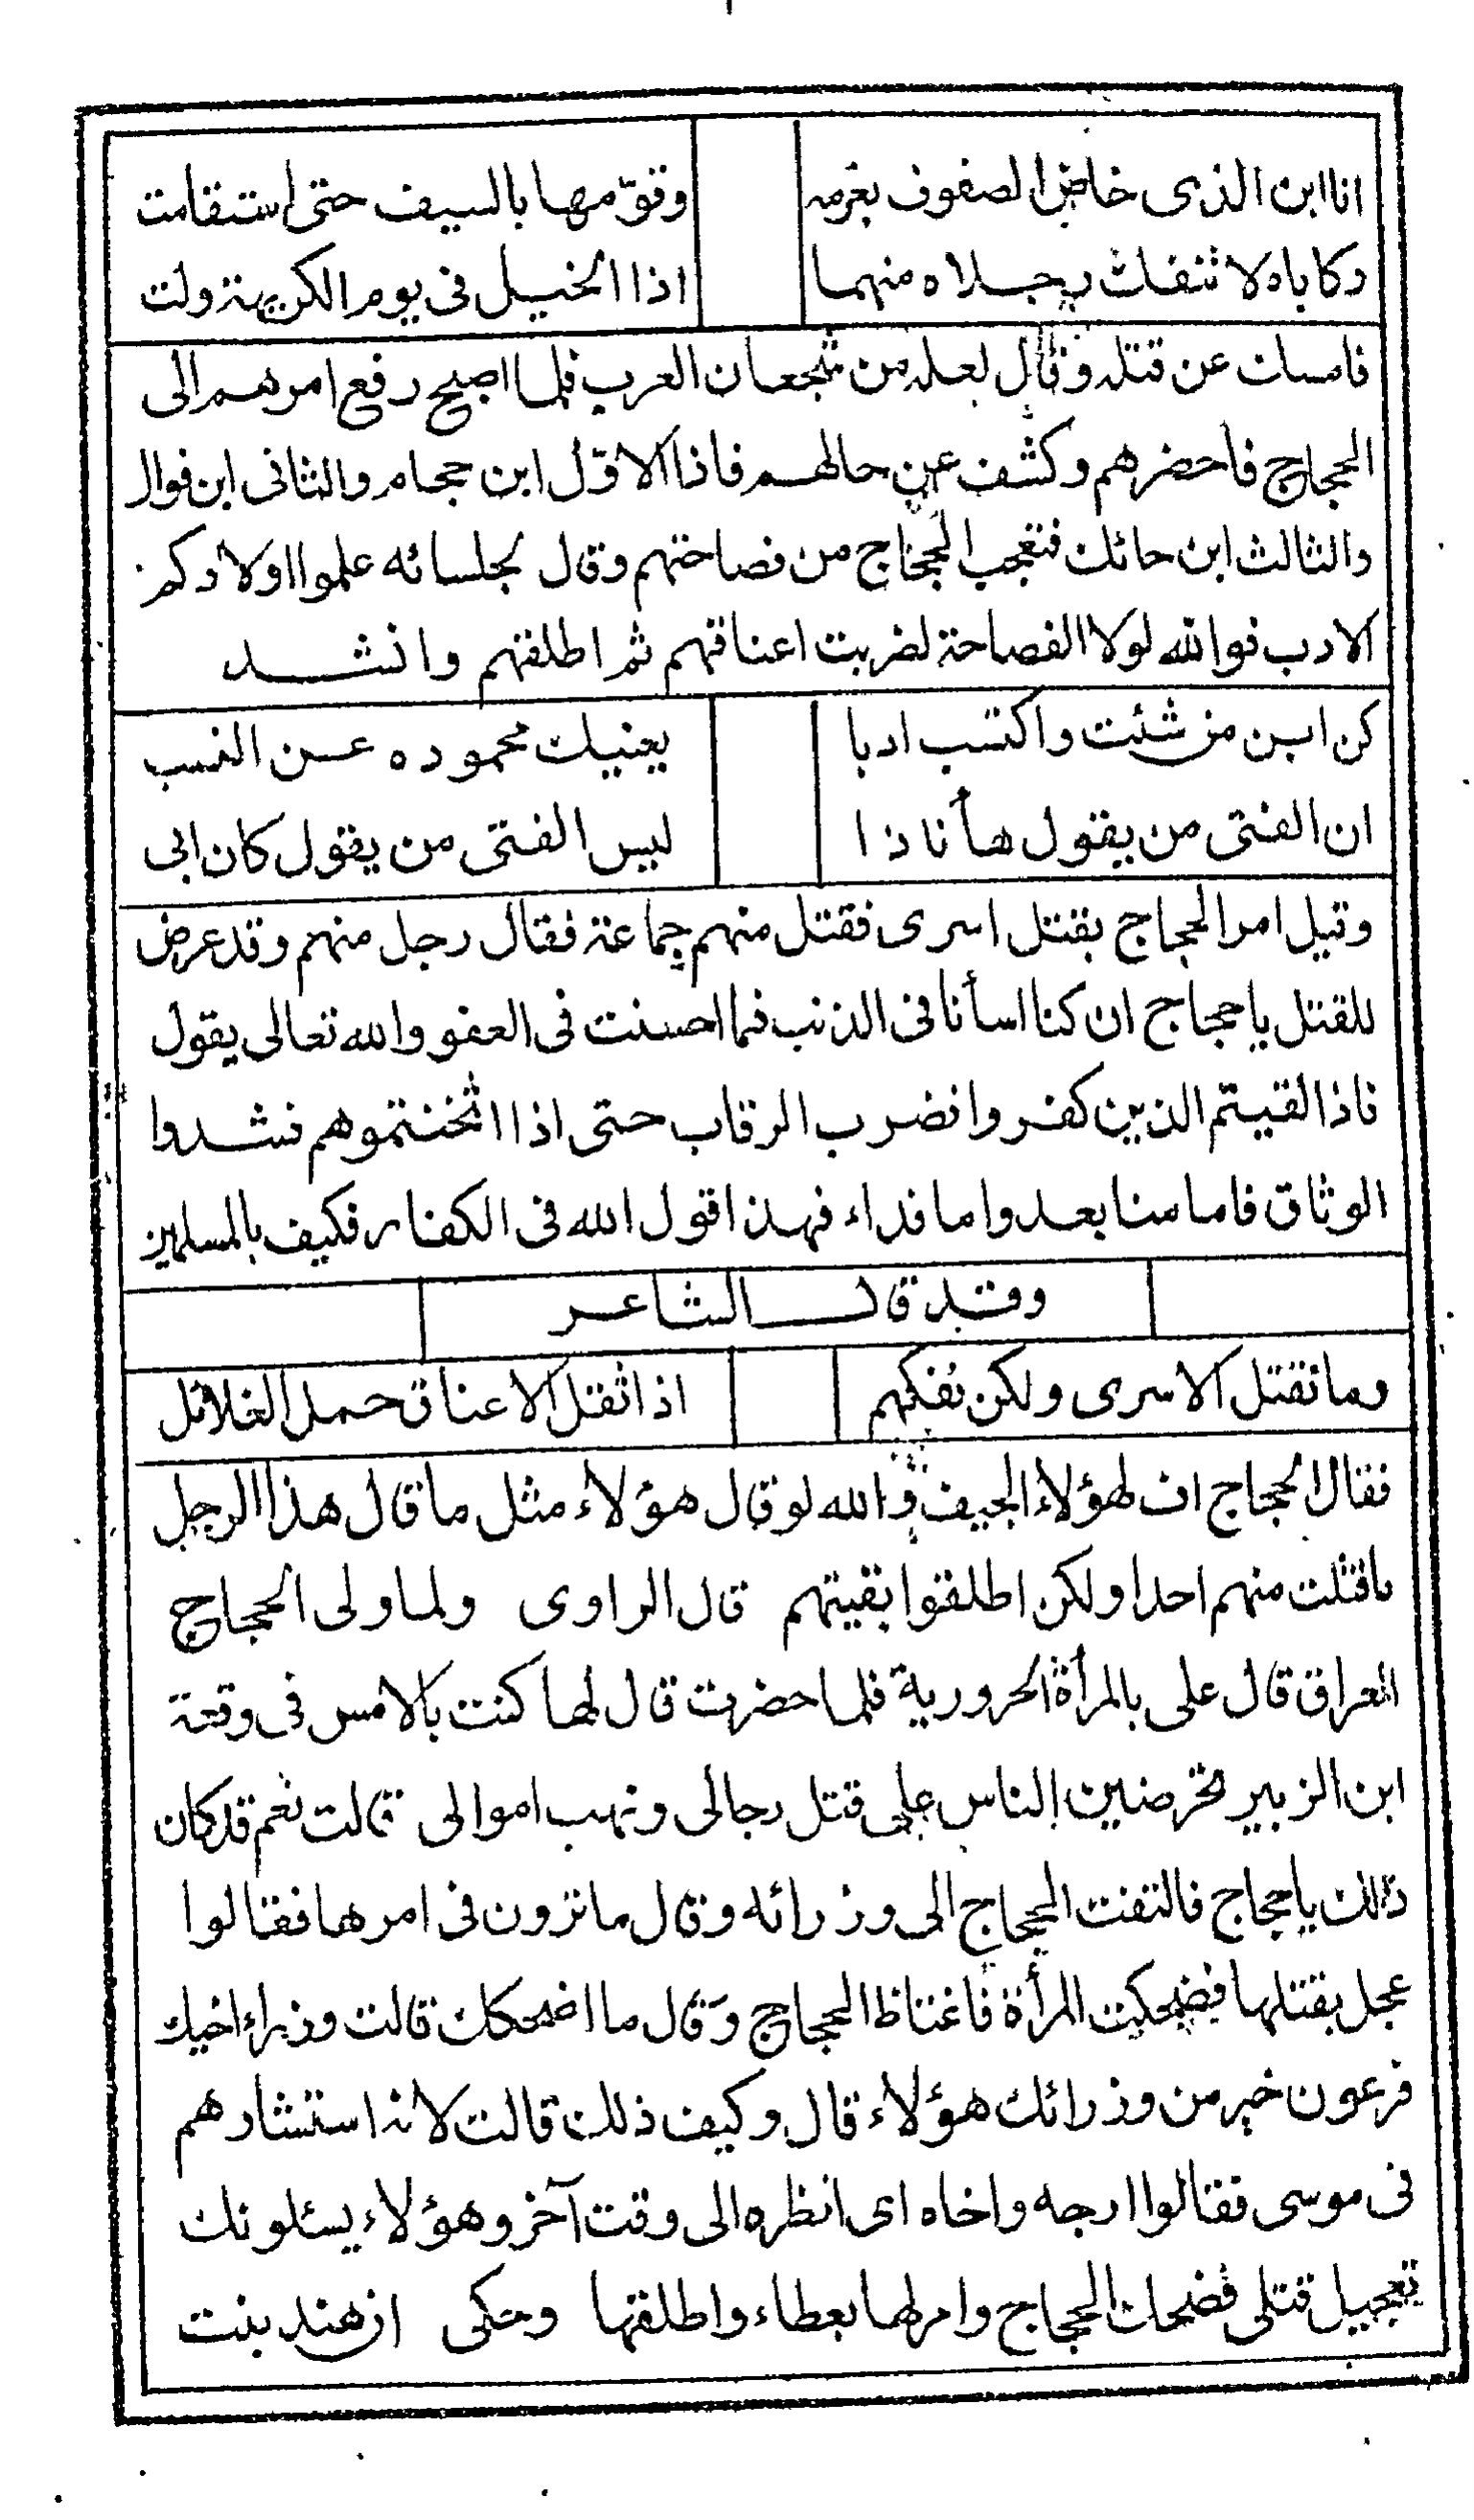 انا ابن الذى خاض الصفوف بعزمه وقوّمها بالسيف حتى استقامت
ركاباه لا تنفك رجلاه منهما اذا الخيل فى يوم الكريهة ولت
فامسك عن قتله وقال لعله من شجعان العرب فلما اصبح رفع امرهم الى
الحجاج فاحضرهم وكشف عن حالهم فاذا الاوّل ابن حجام والثانى ابن فوال
والثالث ابن حائك فتعجب الحجاج من فصاحتهم وقال لجلسائه علموا اولادكم
الادب فوالله لولا الفصاحة لضربت اعناقهم ثم اطلقهم وانشد
كن ابن من شئت واكتسب ادبا يغنيك محموده عن النسب
ان الفتى من يقول هأناذا ليس الفتى من يقول كان ابى
وقيل امر الحجاج بقتل اسرى فقتل منهم جماعة فقال رجل منهم وقد عرض
للقتل يا حجاج ان كنا اسأنا فى الذنب فما احسنت فى العفو والله تعالى يقول
فاذا لقيتم الذين كفروا فضرب الرقاب حتى اذا اثخنتموهم فشدوا
الوثاق فاما منا بعد واما فداء فهذا قول الله فى الكفار فكيف بالمسلمين
وقد قال الشاعر
وما نقتل الاسرى ولكن نفكهم اذا ثقل الاعناق حمل الغلائل
فقال الحجاج اف لهؤلاء الجيف والله لو قال هؤلاء مثل ما قال هذا الرجل
ما قتلت منهم احدا ولكن اطلقوا بقيتهم قال الراوى ولما ولى الحجاج
العراق قال على بالمرأة الحرورية فلما حضرت قال لها كنت بالامس فى وقعة
ابن الزبير تحرضين الناس على قتل رجالى ونهب اموالى قالت نعم قد كان
ذلك يا حجاج فالتفت الحجاج الى وزرائه وقال ما ترون فى امرها فقالوا
عجل بقتلها فضحكت المرأة فاغتاظ الحجاج وقال ما اضحكك قالت وزراء اخيك
فرعون خير من وزرائك هؤلاء قال وكيف ذلك قالت لانه استشارهم
فى موسى فقالوا ارجه واخاه اى انظره الى وقت آخر وهؤلاء يسئلونك
تعجيل قتلى فضحك الحجاج وامر لها بعطاء واطلقها وحكى ان هند بنت